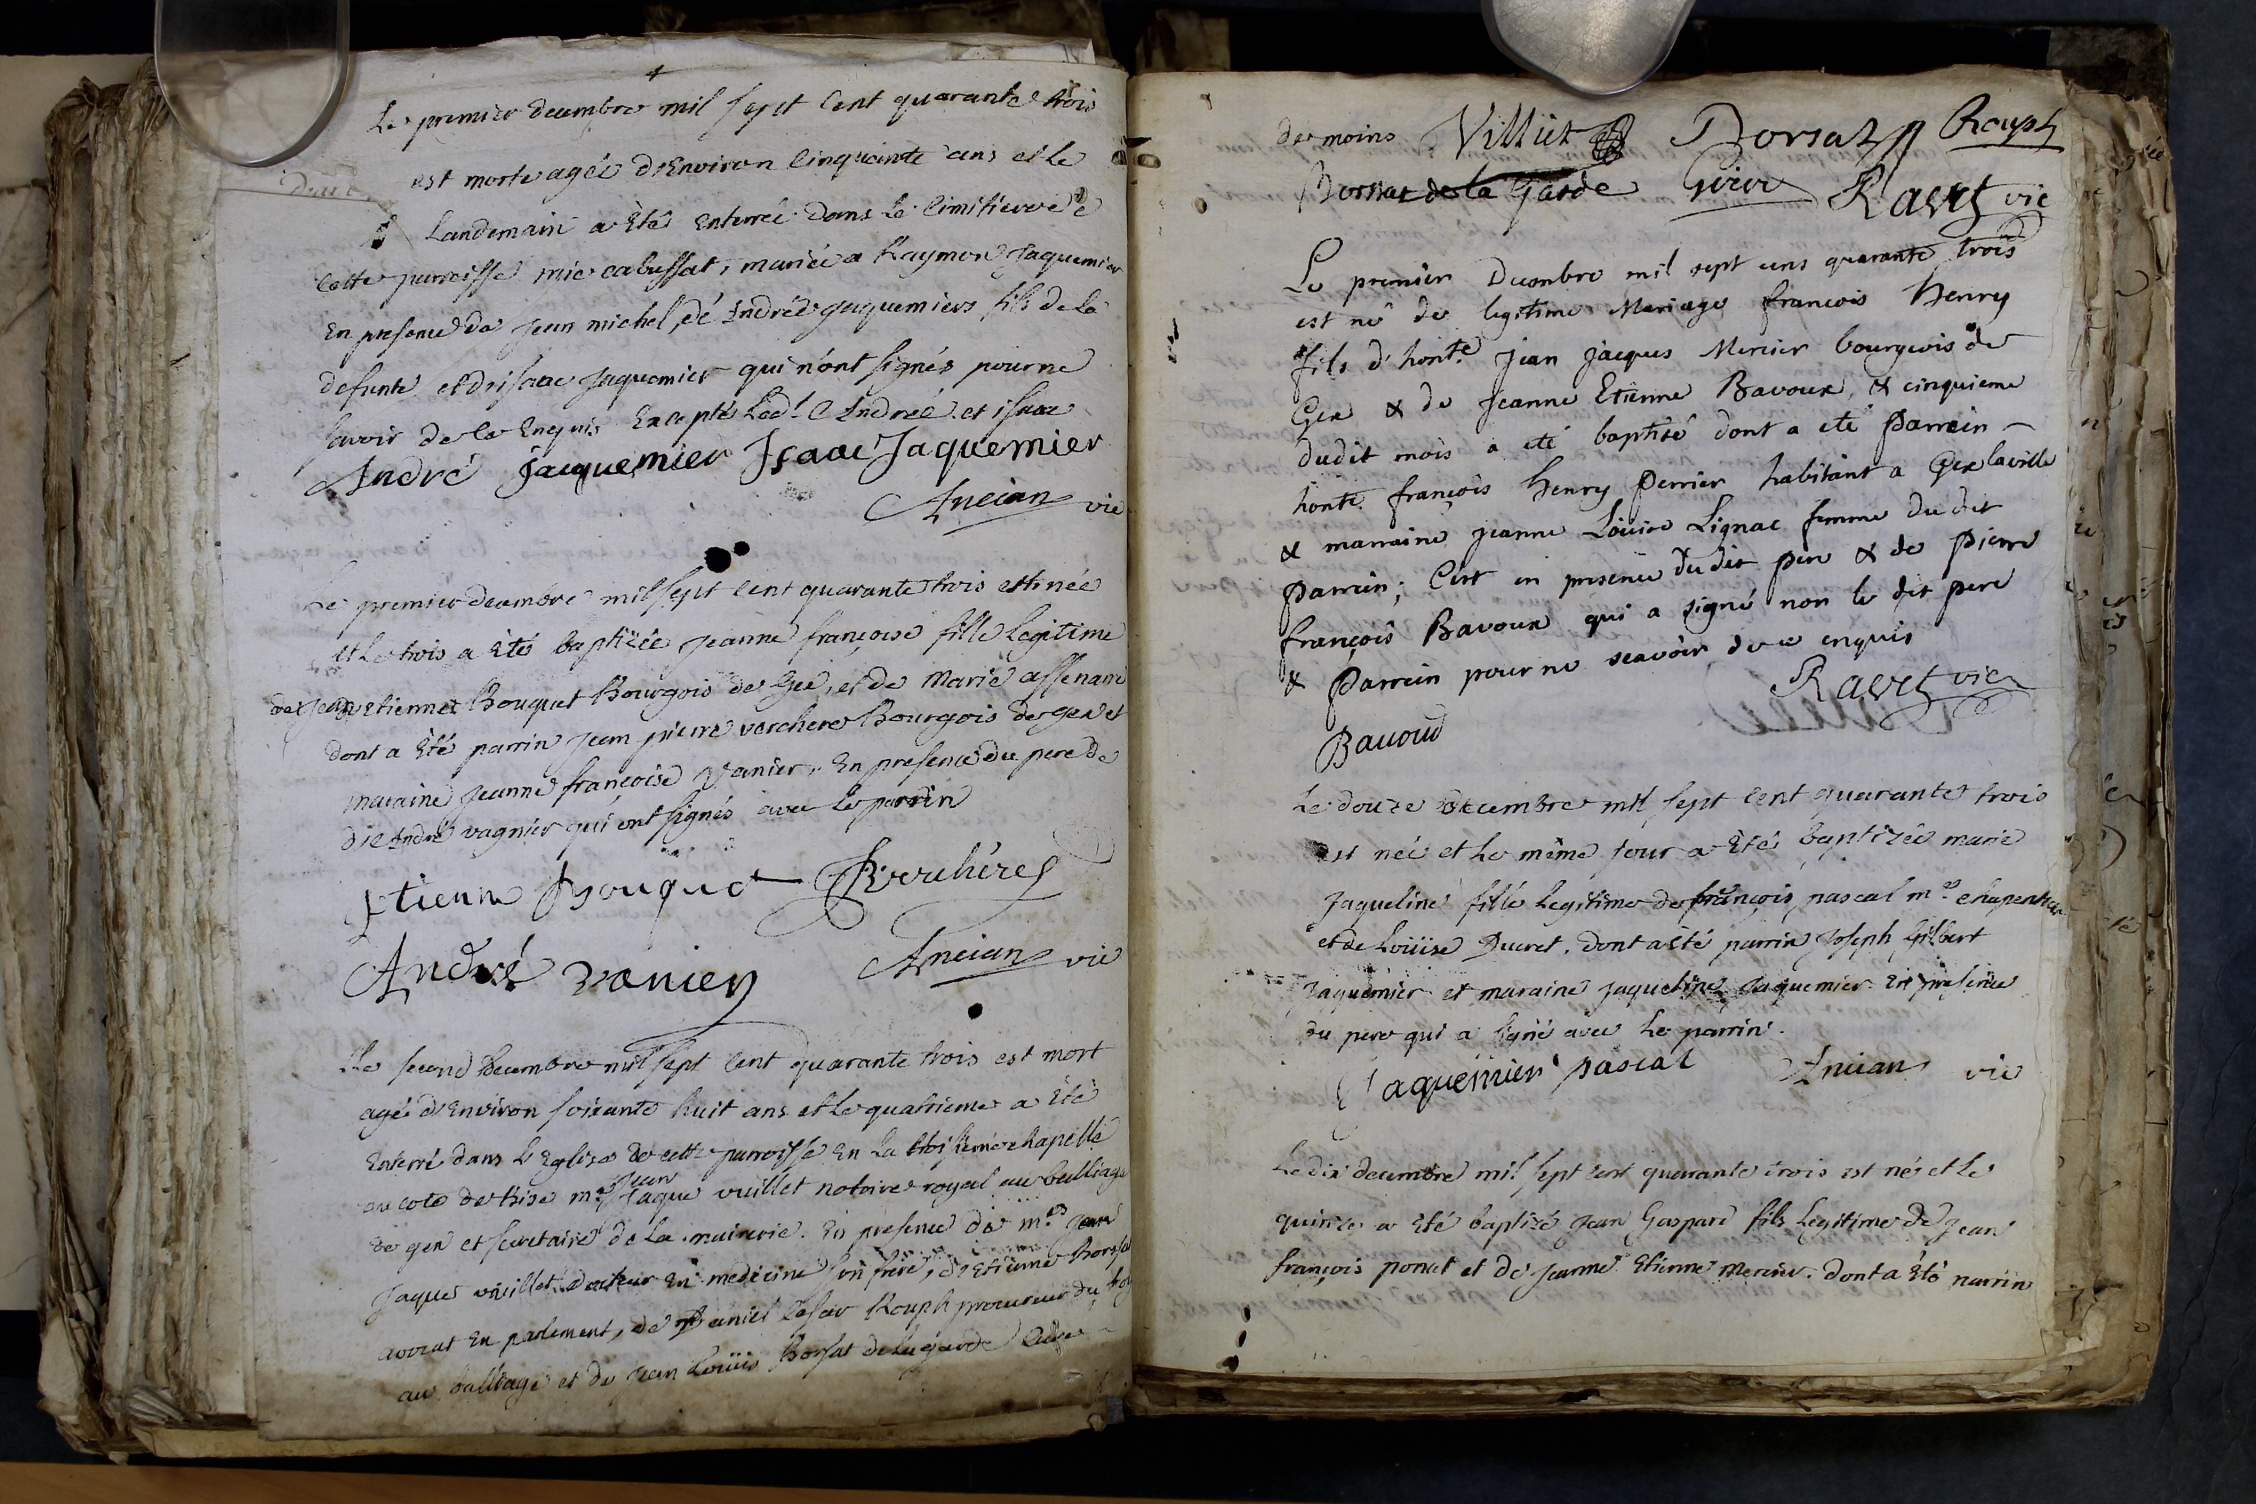 Le premier decembre mil sept cent quarante trois
est morte agée d'Environ Cinquante ans et le
Landemain a été Enterrée dans le Cimitierre de
Cette parroisse mie cabussat, mariée a Raymon Jaquemier
En presence de jean michel, dé André Jaquemiers fils de la
defunte et d'isaac Jaquemier qui n'ont signés pour ne
savoir de ce Enquis Excepté Led.t André et isaac
André jacquemier Isaac Jaquemier
Ancian vic
Le premier decembre mil sept cent quarante trois est née
et le trois a été baptizée jeanne françoise fille Legitime
de jean etienne Bouquet Bourgois de Gex, et de Marie assenare
dont a été parrin jean pierre verchere Bourgois de gex et
maraine jeanne françoise Vanier. En presence du pere de
d'André vagnier qui ont signés avec le parrin
Etienne Bouquet Verchéres
André vanier Ancian vic
Le second decembre mil sept cent quarante trois est mort
agé d'Environ soixante huit ans et le quatrieme a Eté
Enterré dans L'Eglise de cette parroisse En la troisieme chapelle
au coté de bise m.e jean Jaque vuillet notaire royal au balliage
de gex et secretaire de la mairerie. En presence de m.es jean
Jaque vuillet docteur En medecine son frere, d'Etienne Borsat
avocat En parlement, de Daniel Cesar Rouph procureur du roy
au balliage et de jean Louïs Borsat de la garde
de moins Villiet Borsat Rouph
Borssat de la Garde Girod Ravet vic
Le premier Decembre mil sept cens quarante trois
est né de legitime Mariage francois Henry
fils d'honte. jean jacques Mercier bourgeois de
Gex & de jeanne Etienne Bavoux, & cinquieme
dudit mois a eté baptisé dont a eté Parrein
honte. françois Henry Perrier habitant a Gex la ville
& marraine jeanne Louise Lignac femme dudit
Parrein; C'est en presence dudit pere & de Pierre
françois Bavoux qui a signé non le dit pere
& Parrein pour ne scavoir de ce enquis
Ravet vic
Bavoud
Le douze decembre mil sept cent quarante trois
est née et le même jour a Eté baptizée marie
Jaqueline fille Legitime de françois pascal m.e chapentier
et de Louïse Ducret. dont a été parrin Joseph Gilbert
Jaquemier et maraine jaqueline Jaquemier. En presence
du pere qui a signé avec Le parrin.
Jaquemier pascal Ancian vic
Le dix decembre mil sept cent quarante trois est né et le
quinze a Eté baptizé jean Gaspard fils Legitime de jean
françois ponet et de jeanne Etienne mercier. dont a Eté parrin